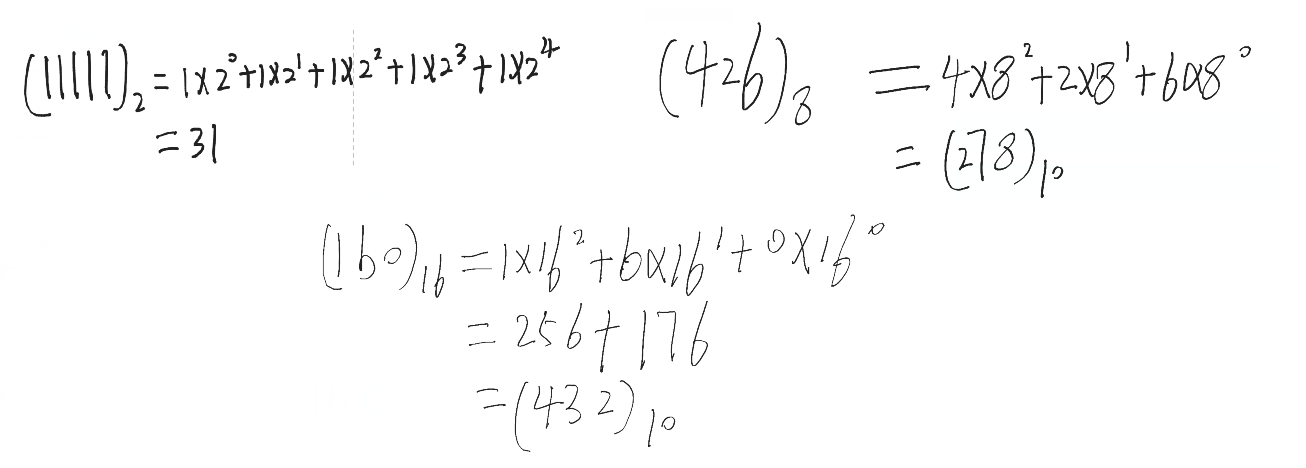 (11111)₂ = 1×2⁰+1×2¹+1×2²+1×2³+1×2⁴
= 31
(426)₈ = 4×8²+2×8¹+6×8⁰
= (278)₁₀
(1b0)₁₆ = 1×16²+b×16¹+0×16⁰
= 256+176
= (432)₁₀